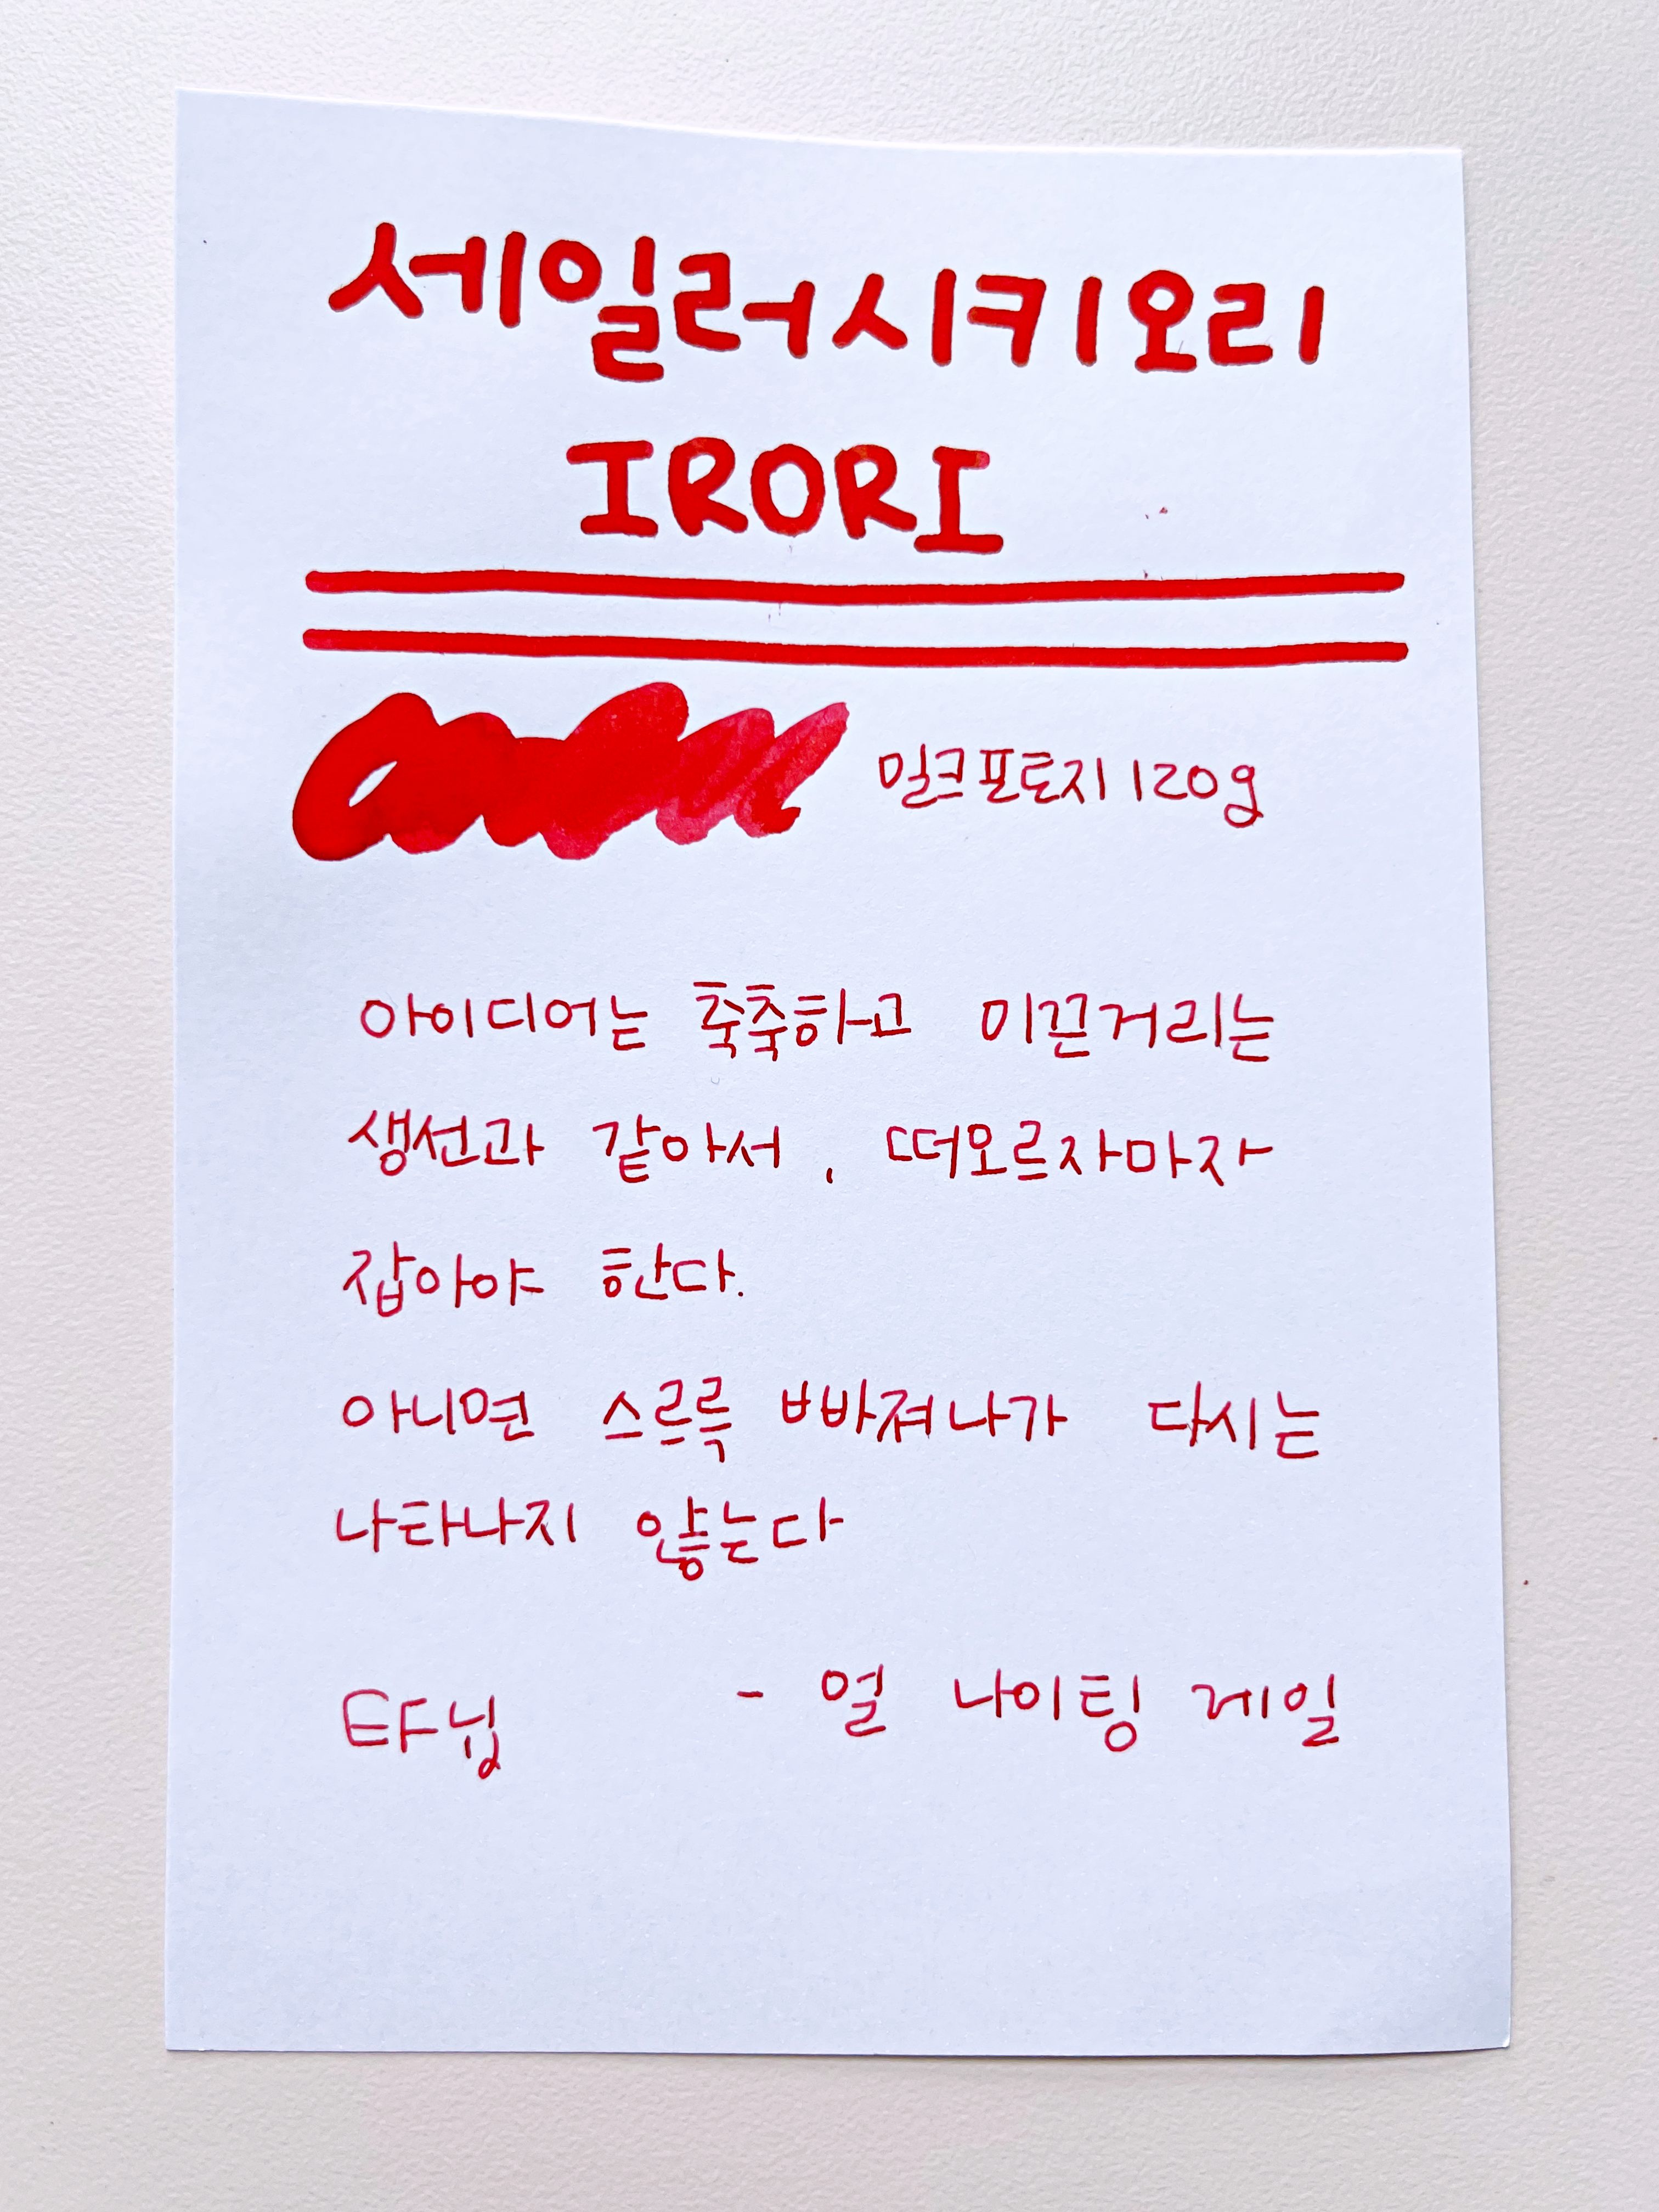 세일러시키오리
IRORI
밀크포토지 120g
아이디어는 축축하고 미끈거리는
생선과 같아서, 떠오르자마자
잡아야 한다.
아니면 스르륵 빠져나가 다시는
나타나지 않는다
EF닙
- 얼 나이팅 게일